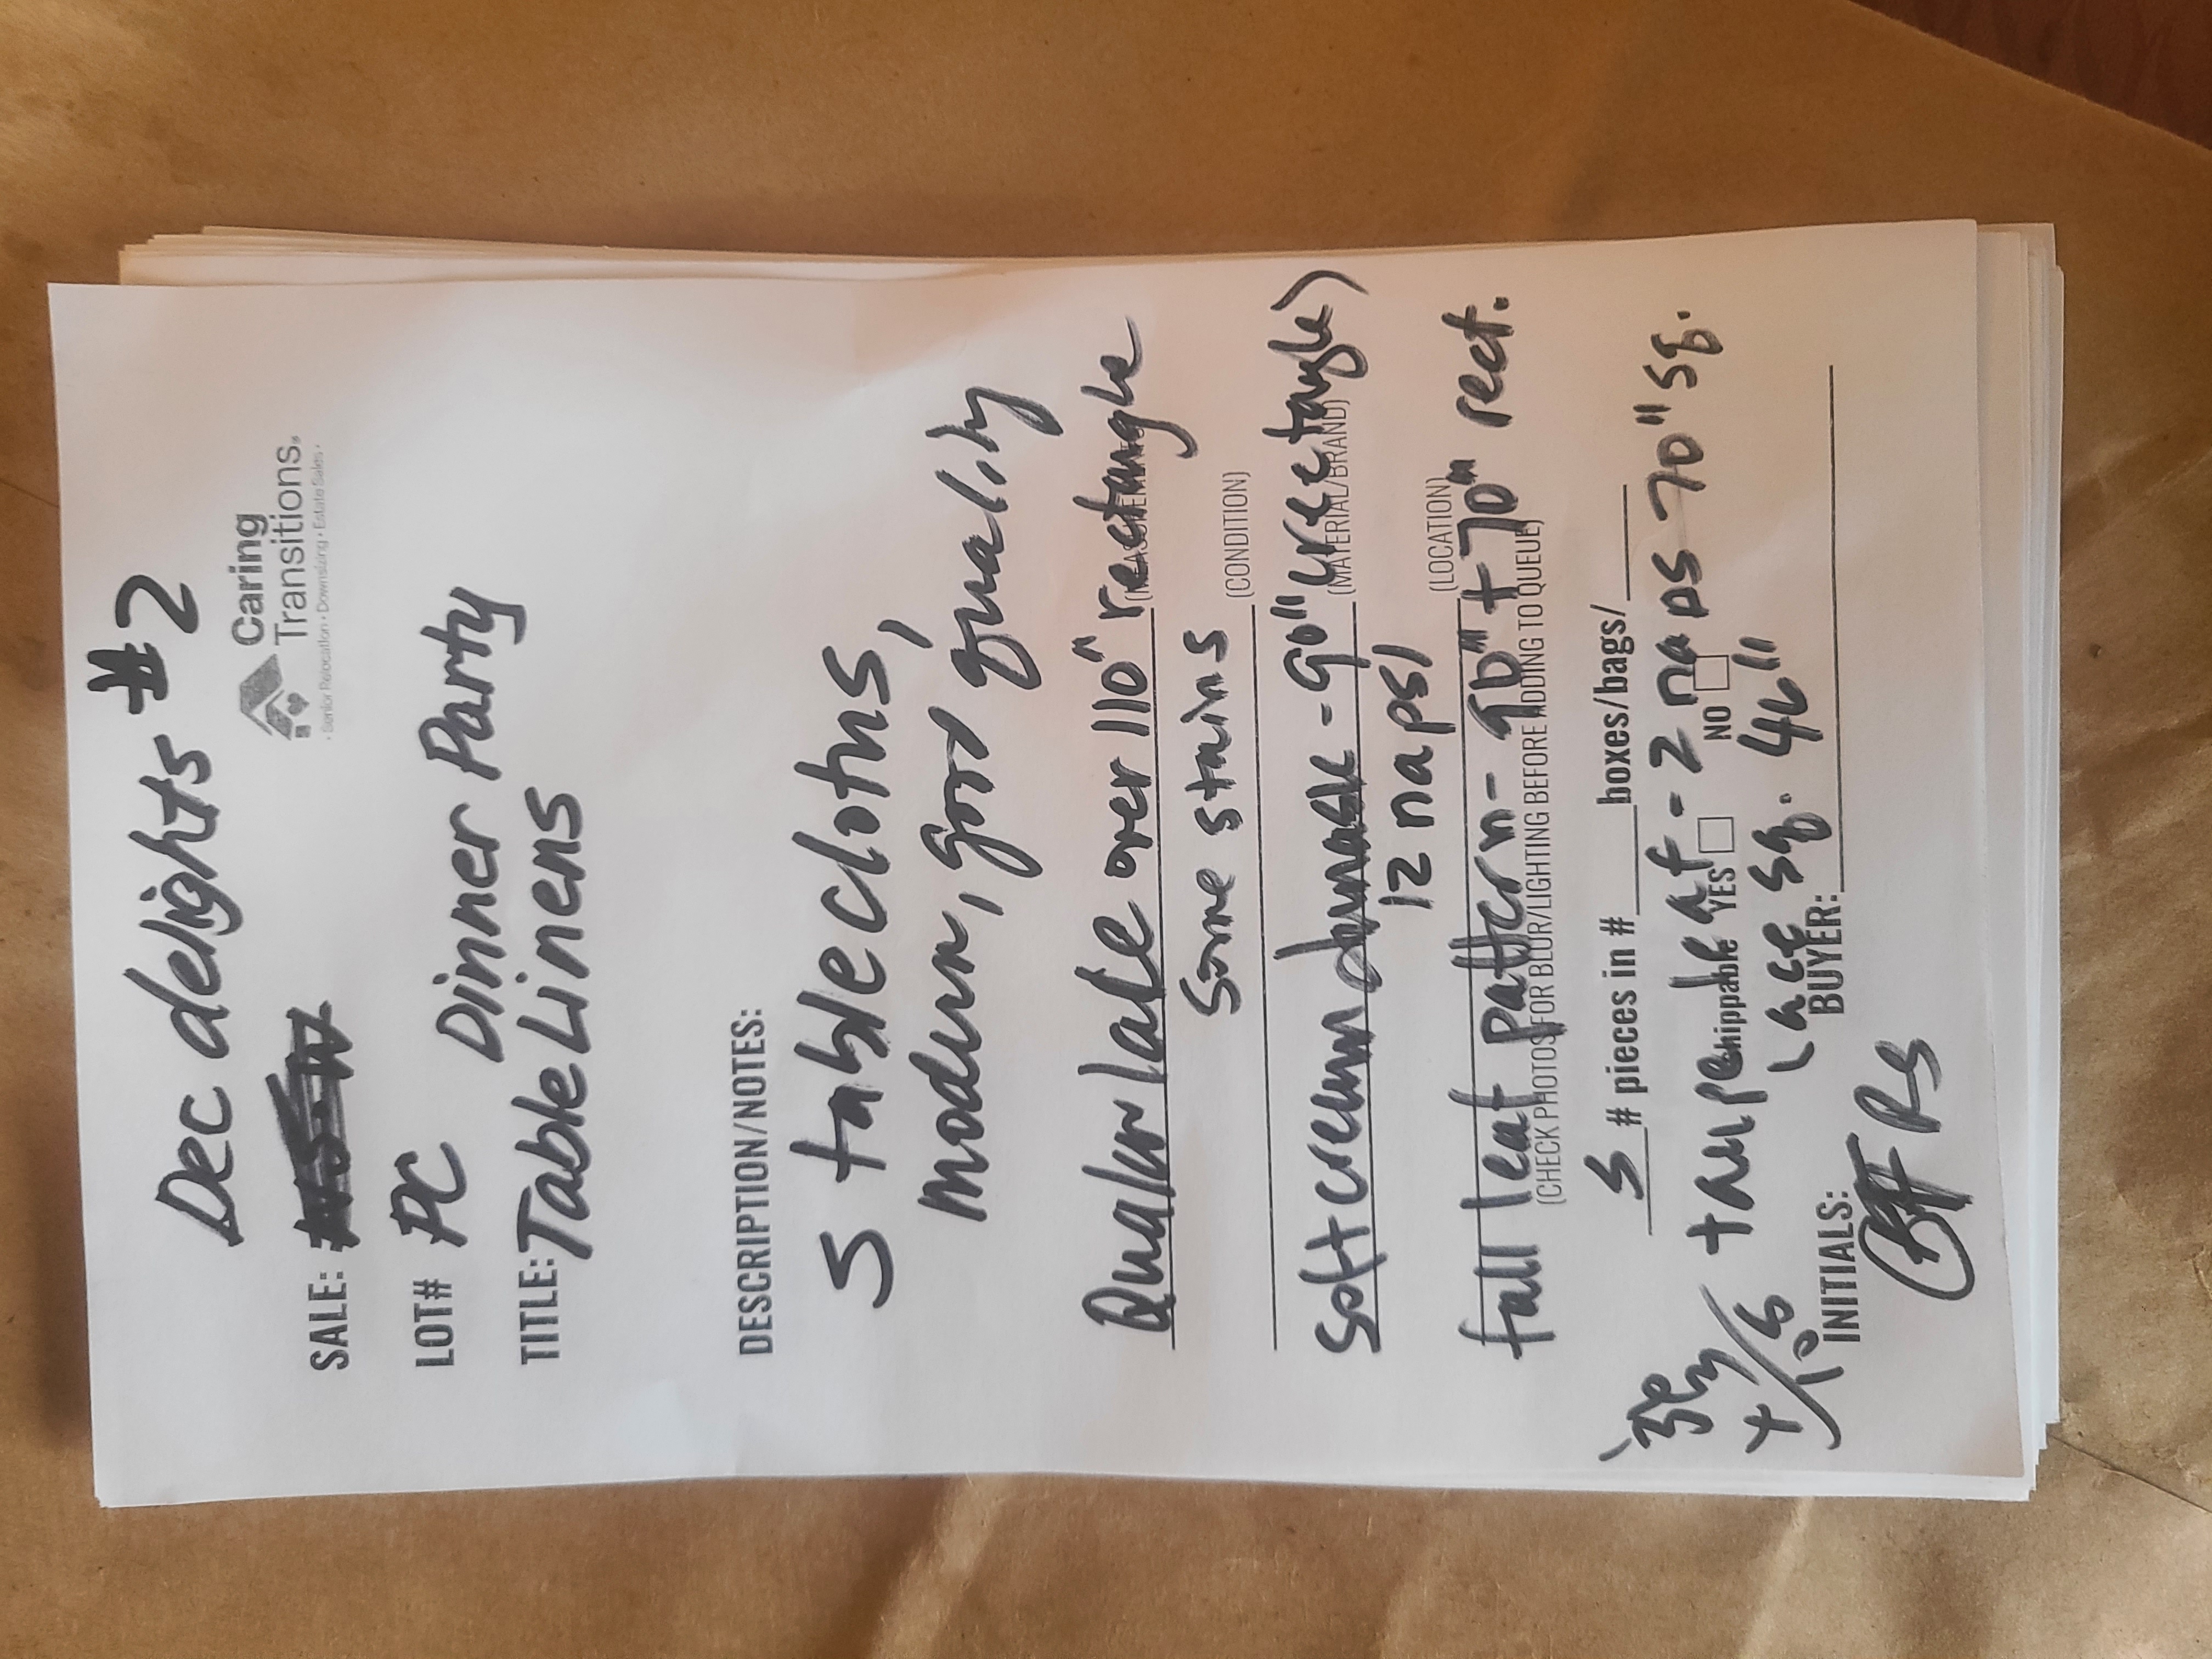 Dec delights #2
Caring
Transitions.
• Senior Relocation • Downsizing • Estate Sales •
SALE:
LOT# PC
Dinner Party
TITLE: Table Linens
DESCRIPTION/NOTES:
5 tablecloths,
modern, good quality
Quaker lace over 110" rectangle
some stains
(CONDITION)
Soft cream damask - 90" (rectangle)
(MATERIAL/BRAND)
12 naps)
(LOCATION)
fall leaf pattern - 90" + 70" rect.
(CHECK PHOTOS FOR BLUR/LIGHTING BEFORE ADDING TO QUEUE)
5 # pieces in # boxes/bags/
taupe leaf - 2 naps 70" sq.
shippable YES NO
lace sq. 46"
INITIALS: BUYER:
RS